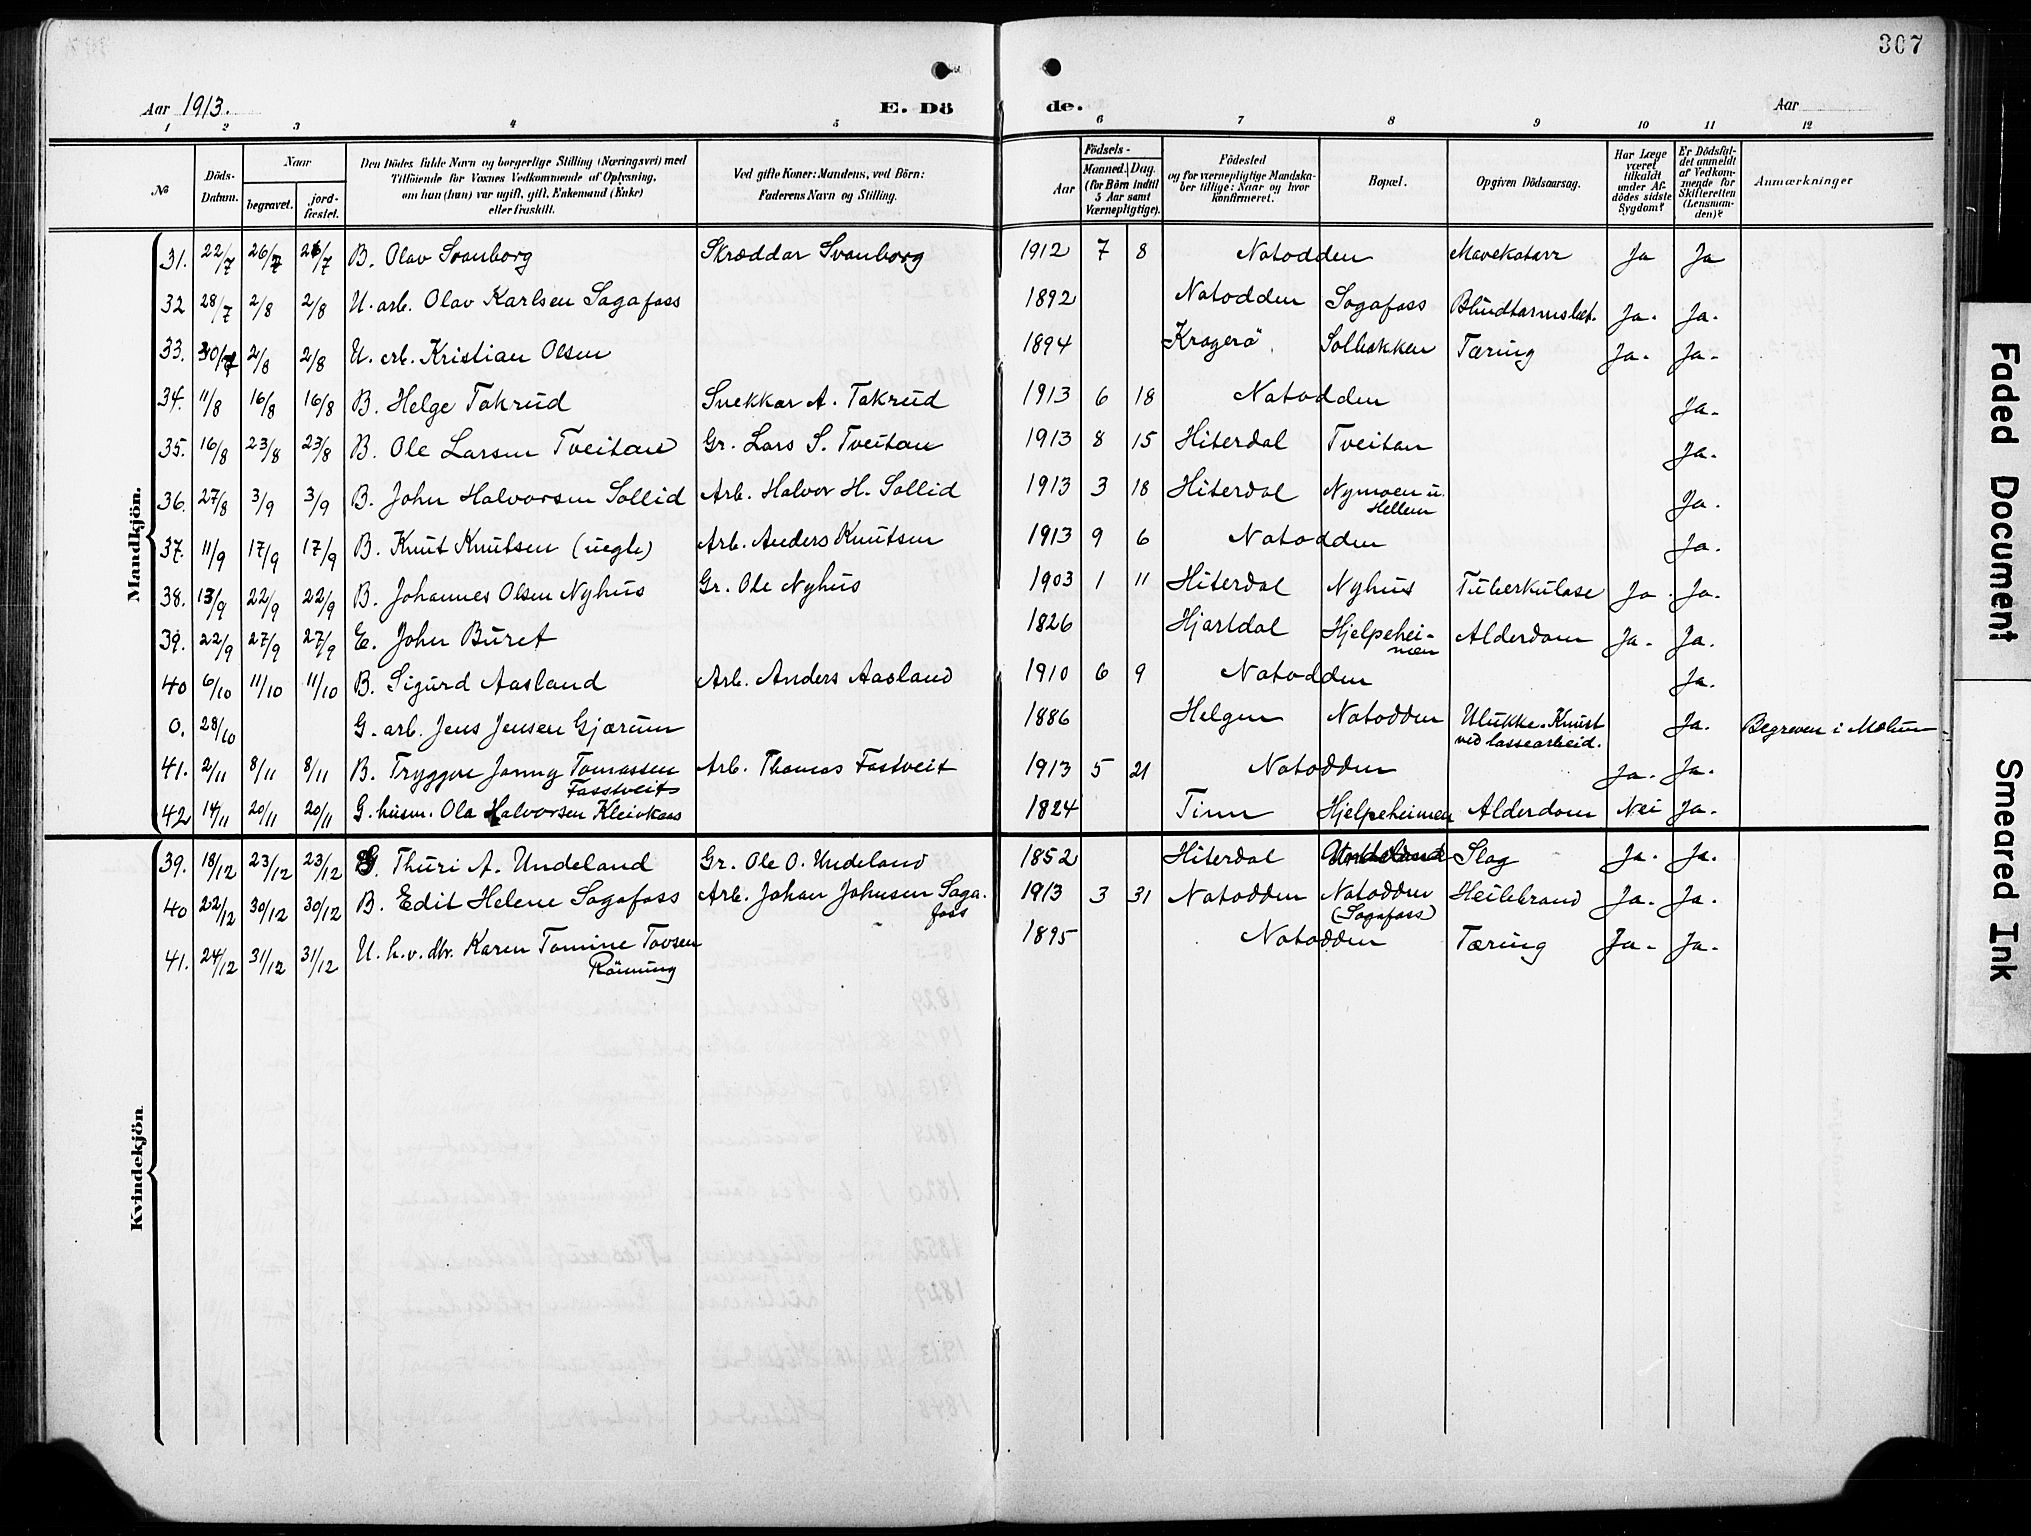 307
Aar 1913.
E. Dö
de.
Aar
1 2 3 4 5 6 7 8 9 10 11 12
No
Döds-Datum.
Naar
begravet.
jord-fæstet.
Den Dödes fulde Navn og borgerlige Stilling (Næringsvei) med
Tilföiende for Voxnes Vedkommende af Oplysning,
om han (hun) var ugift, gift, Enkemand (Enke)
eller fraskilt.
Ved gifte Koner: Mandens, ved Börn:
Faderens Navn og Stilling.
Födsels-
Aar
Maaned. Dag.
(for Börn indtil
5 Aar samt
Værnepligtige).
Födested
og for værnepligtige Mandska-
ber tillige: Naar og hvor
konfirmeret.
Bopæl.
Opgiven Dödsaarsag.
Har Læge
været
tilkaldt
under Af-
dödes sidste
Sygdom?
Er Dödsfal-
det anmeldt
af Vedkom-
mende for
Skifteretten
(Lensman-
den)?
Anmærkninger
Mandkjön.
31. 22/7 26/7 26/7 B. Olav Svanborg Skræddar Svanborg 1912 7 8 Notodden Mavekatarr Ja Ja
32 28/7 2/8 2/8 U. arb. Olav Karlsen Sagafoss 1892 Notodden Sagafoss Blindtarmsbet. Ja. Ja.
33. 30/7 2/8 2/8 U. arb. Kristian Olsen 1894 Kragerö Solbakken Tæring Ja. Ja.
34. 11/8 16/8 16/8 B. Helge Takrud Snekkar A. Takrud 1913 6 18 Notodden Ja.
35. 16/8 23/8 23/8 B. Ole Larsen Tveitan Gr. Lars S. Tveitan 1913 8 15 Hiterdal Tveitan Ja.
36. 27/8 3/9 3/9 B. John Halvorsen Sollid Arb. Halvor H. Sollid 1913 3 18 Hiterdal Nymoen u. Hellem Ja.
37. 11/9 17/9 17/9 B. Knut Knutsen (uegte) Arb. Anders Knutsen 1913 9 6 Notodden Ja.
38. 13/9 22/9 22/9 B. Johannes Olsen Nyhus Gr. Ole Nyhus 1903 1 11 Hiterdal Nyhus Tuberkulose Ja. Ja.
39. 22/9 27/9 27/9 E. John Buret 1826 Hjartdal Hjelpehei-men Alderdom Ja. Ja.
40 6/10 11/10 11/10 B. Sigurd Aasland Arb. Anders Aasland 1910 6 9 Notodden Ja.
0. 28/10 G. arb. Jens Jensen Gjærum 1886 Helgen Notodden Ulukke. Knust ved lassearbeid. Ja. Begraven i Melum
41. 2/11 8/11 8/11 B. Tryggve Jonny Tomassen Fasstveit Arb. Thomas Fastveit 1913 5 21 Notodden Ja. Ja.
42 14/11 20/11 20/11 G. husm. Ola Halvorsen Kleivkaas 1824 Tinn Hjelpeheimen Alderdom Nei Ja.
Kvindekjön.
39. 18/12 23/12 23/12 G. Thuri A. Undeland Gr. Ole O. Undeland 1852 Hiterdal Undeland Slag Ja. Ja.
40 22/12 30/12 30/12 B. Edit Helene Sagafoss Arb. Johan Johnsen Saga-foss 1913 3 31 Notodden Notodden (Sagafoss) Heilebrand Ja. Ja.
41. 24/12 31/12 31/12 U. h.v. dtr. Karen Tomine Tovsen Rönning 1895 Notodden Tæring Ja. Ja.
Faded Document
Smeared Ink